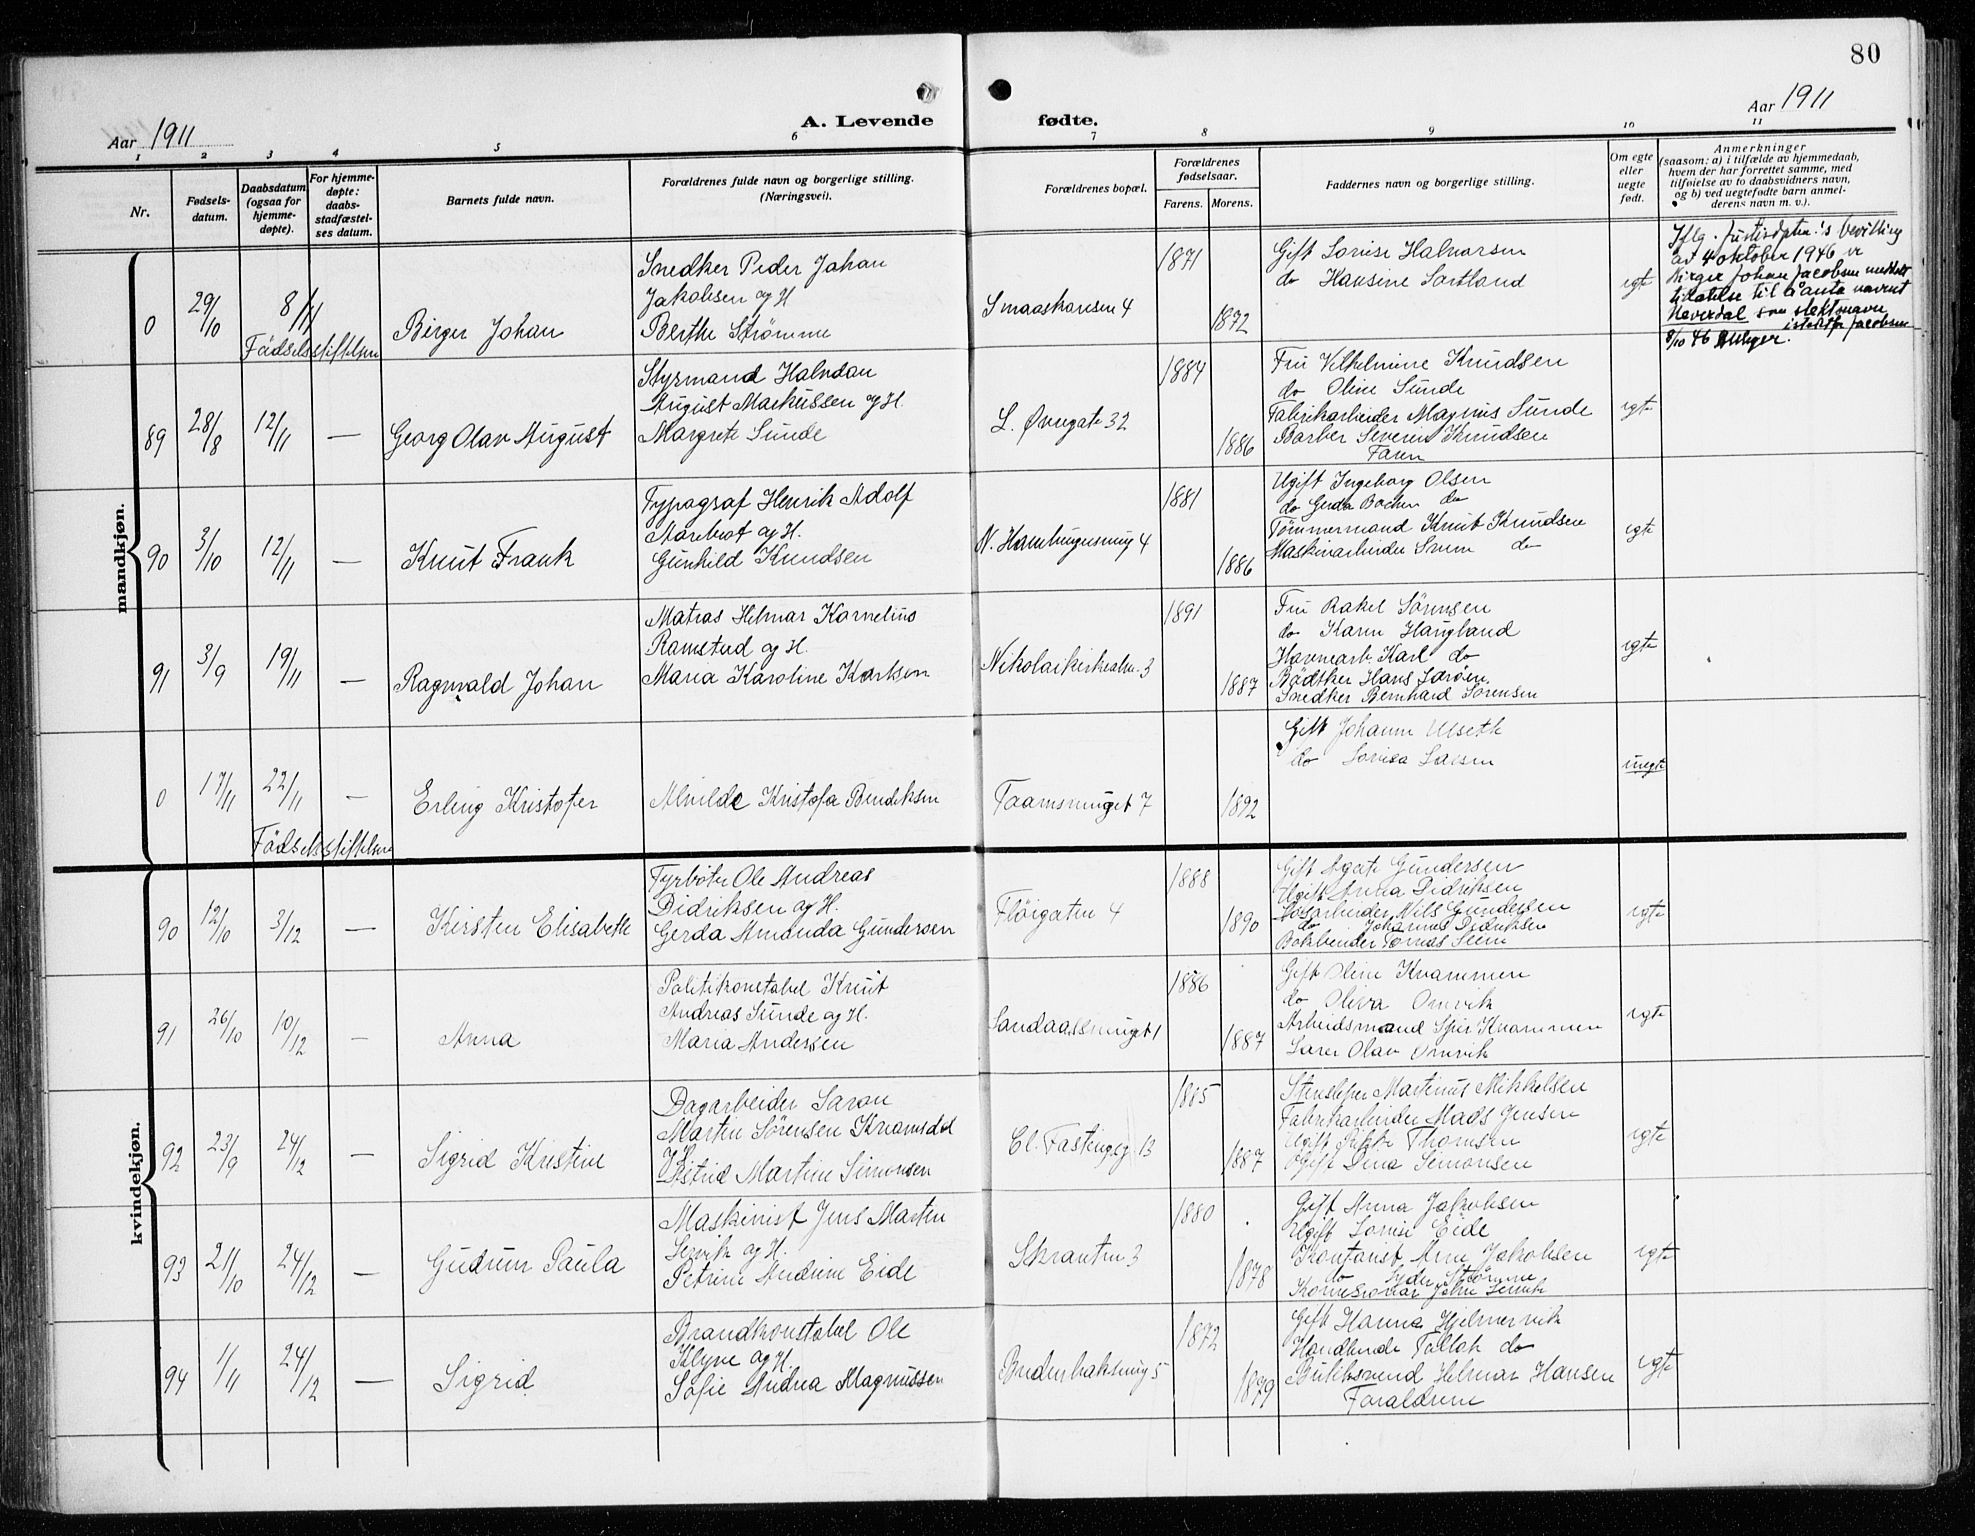 80
Aar 1911
A. Levende
fødte.
Aar 1911
1 2 3 4 5 6 7 8 9 10 11
Nr.
Fødsels-
datum.
Daabsdatum
(ogsaa for
hjemme-
døpte).
For hjemme-
døpte:
daabs-
stadfæstel-
ses datum.
Barnets fulde navn.
Forældrenes fulde navn og borgerlige stilling.
(Næringsvei).
Forældrenes bopæl.
Forældrenes
fødselsaar.
Farens. Morens.
Faddernes navn og borgerlige stilling.
Om egte
eller
uegte
født.
Anmerkninger
(saasom: a) i tilfælde av hjemmedaab,
hvem der har forrettet samme, med
tilføielse av to daabsvidners navn,
og b) ved uegtefødte barn anmel-
derens navn m. v.).
mandkjøn.
0
29/10
8/11
Fødselsstiftelsen
Birger Johan
Snedker Peder Johan
Jakobsen og H
Berthe Strømme
Smaaskansen 4
1871
1872
Gift Lovise Halvorsen
do Hansine Sortland
egte
Iflg. justisdptm.'s bevilling
av 4 oktober 1946 er
Birger Johan Jacobsen meddelt
tillatelse til å anta navnet
Heverdal som slektsnavn
istedtfor Jacobsen
8/10 46
89
28/8
12/11
—
Georg Olav August
Styrmand Halvdan
August Markussen og H.
Margrete Sunde
L. Øvregate 32
1884
1886
Fru Vilhelmine Knudsen
do Oline Sunde
Fabrikarbeider Magnus Sunde
Barber Severin Knudsen
Faren
egte
90
3/10
12/11
—
Knut Frank
Typograf Henrik Adolf
Aarebrot og H.
Gunhild Knudsen
N. Hamburgersmug 4
1881
1886
Ugift Ingeborg Olsen
do Gerda Bocken do
Tømmermand Knut Knudsen
Maskinarbeider do
egte
91
3/9
19/11
—
Ragnvald Johan
Matros Helmar Kornelius
Ramstad og H.
Maria Karoline Karlsen
Nikolaikirkealm. 3
1891
1887
Fru Rakel Sørensen
do Karen Haugland
Havnearb. Karl do
Bødtker Hans
Snedker Bernhard Sørensen
egte
0
17/11
22/11
—
Fødselsstiftelsen
Erling Kristofer
Alvilde Kristofa Bendiksen
Taarnsmuget 7
1892
Gift Johanne Ulseth
do Lovisa Larsen
uegte
kvindekjøn.
90
12/10
3/12
—
Kirsten Elisabeth
Fyrbøter Ole Andreas
Didriksen og H.
Gerda Amanda Gundersen
Fløigaten 4
1888
1890
Gift Agate Gundersen
Ugift Anna Didriksen
Nils Gundersen
do Johannes Didriksen
Bokbinder Tomas Steen
egte
91
26/10
10/12
—
Anna
Politikonstabel Knut
Andreas Sunde og H.
Maria Andersen
Sandaassmuget 1
1886
1887
Gift Oline Kvammen
do Olivia Omvik
Arbeidsmand Sjur Kvammen
Olav Omvik
egte
92
23/9
24/12
—
Sigrid Kristine
Dagarbeider Saron
Martin Sørensen Kvamsdal
og H.
Astrid Martine Simonsen
Cl. Fastingsg. 13
1885
1887
Stensliper Martinus Mikkelsen
Fabrikarbeider Mads Jensen
Ugift Thomsen
Ugift Dina Simonsen
egte
93
21/10
24/12
—
Gudrun Paula
Maskinist Jens Martin
Lervik og H.
Petrine Andrine Eide
Skranten 3
1880
1878
Gift Anna Jakobsen
Ugift Lovise Eide
Kontorist Arne Jakobsen
do Peder Strømme
Kommisionær John Lervik
egte
94
1/11
24/12
—
Sigrid
Brandkonstabel Ole
Klyve og H.
Sofie Andrea Magnussen
Bredenbaksmug 5
1872
1879
Gift Hanna Hjelmervik
Handlende Tollak do
Butiksvend Helmar Hansen
Forældrene
egte